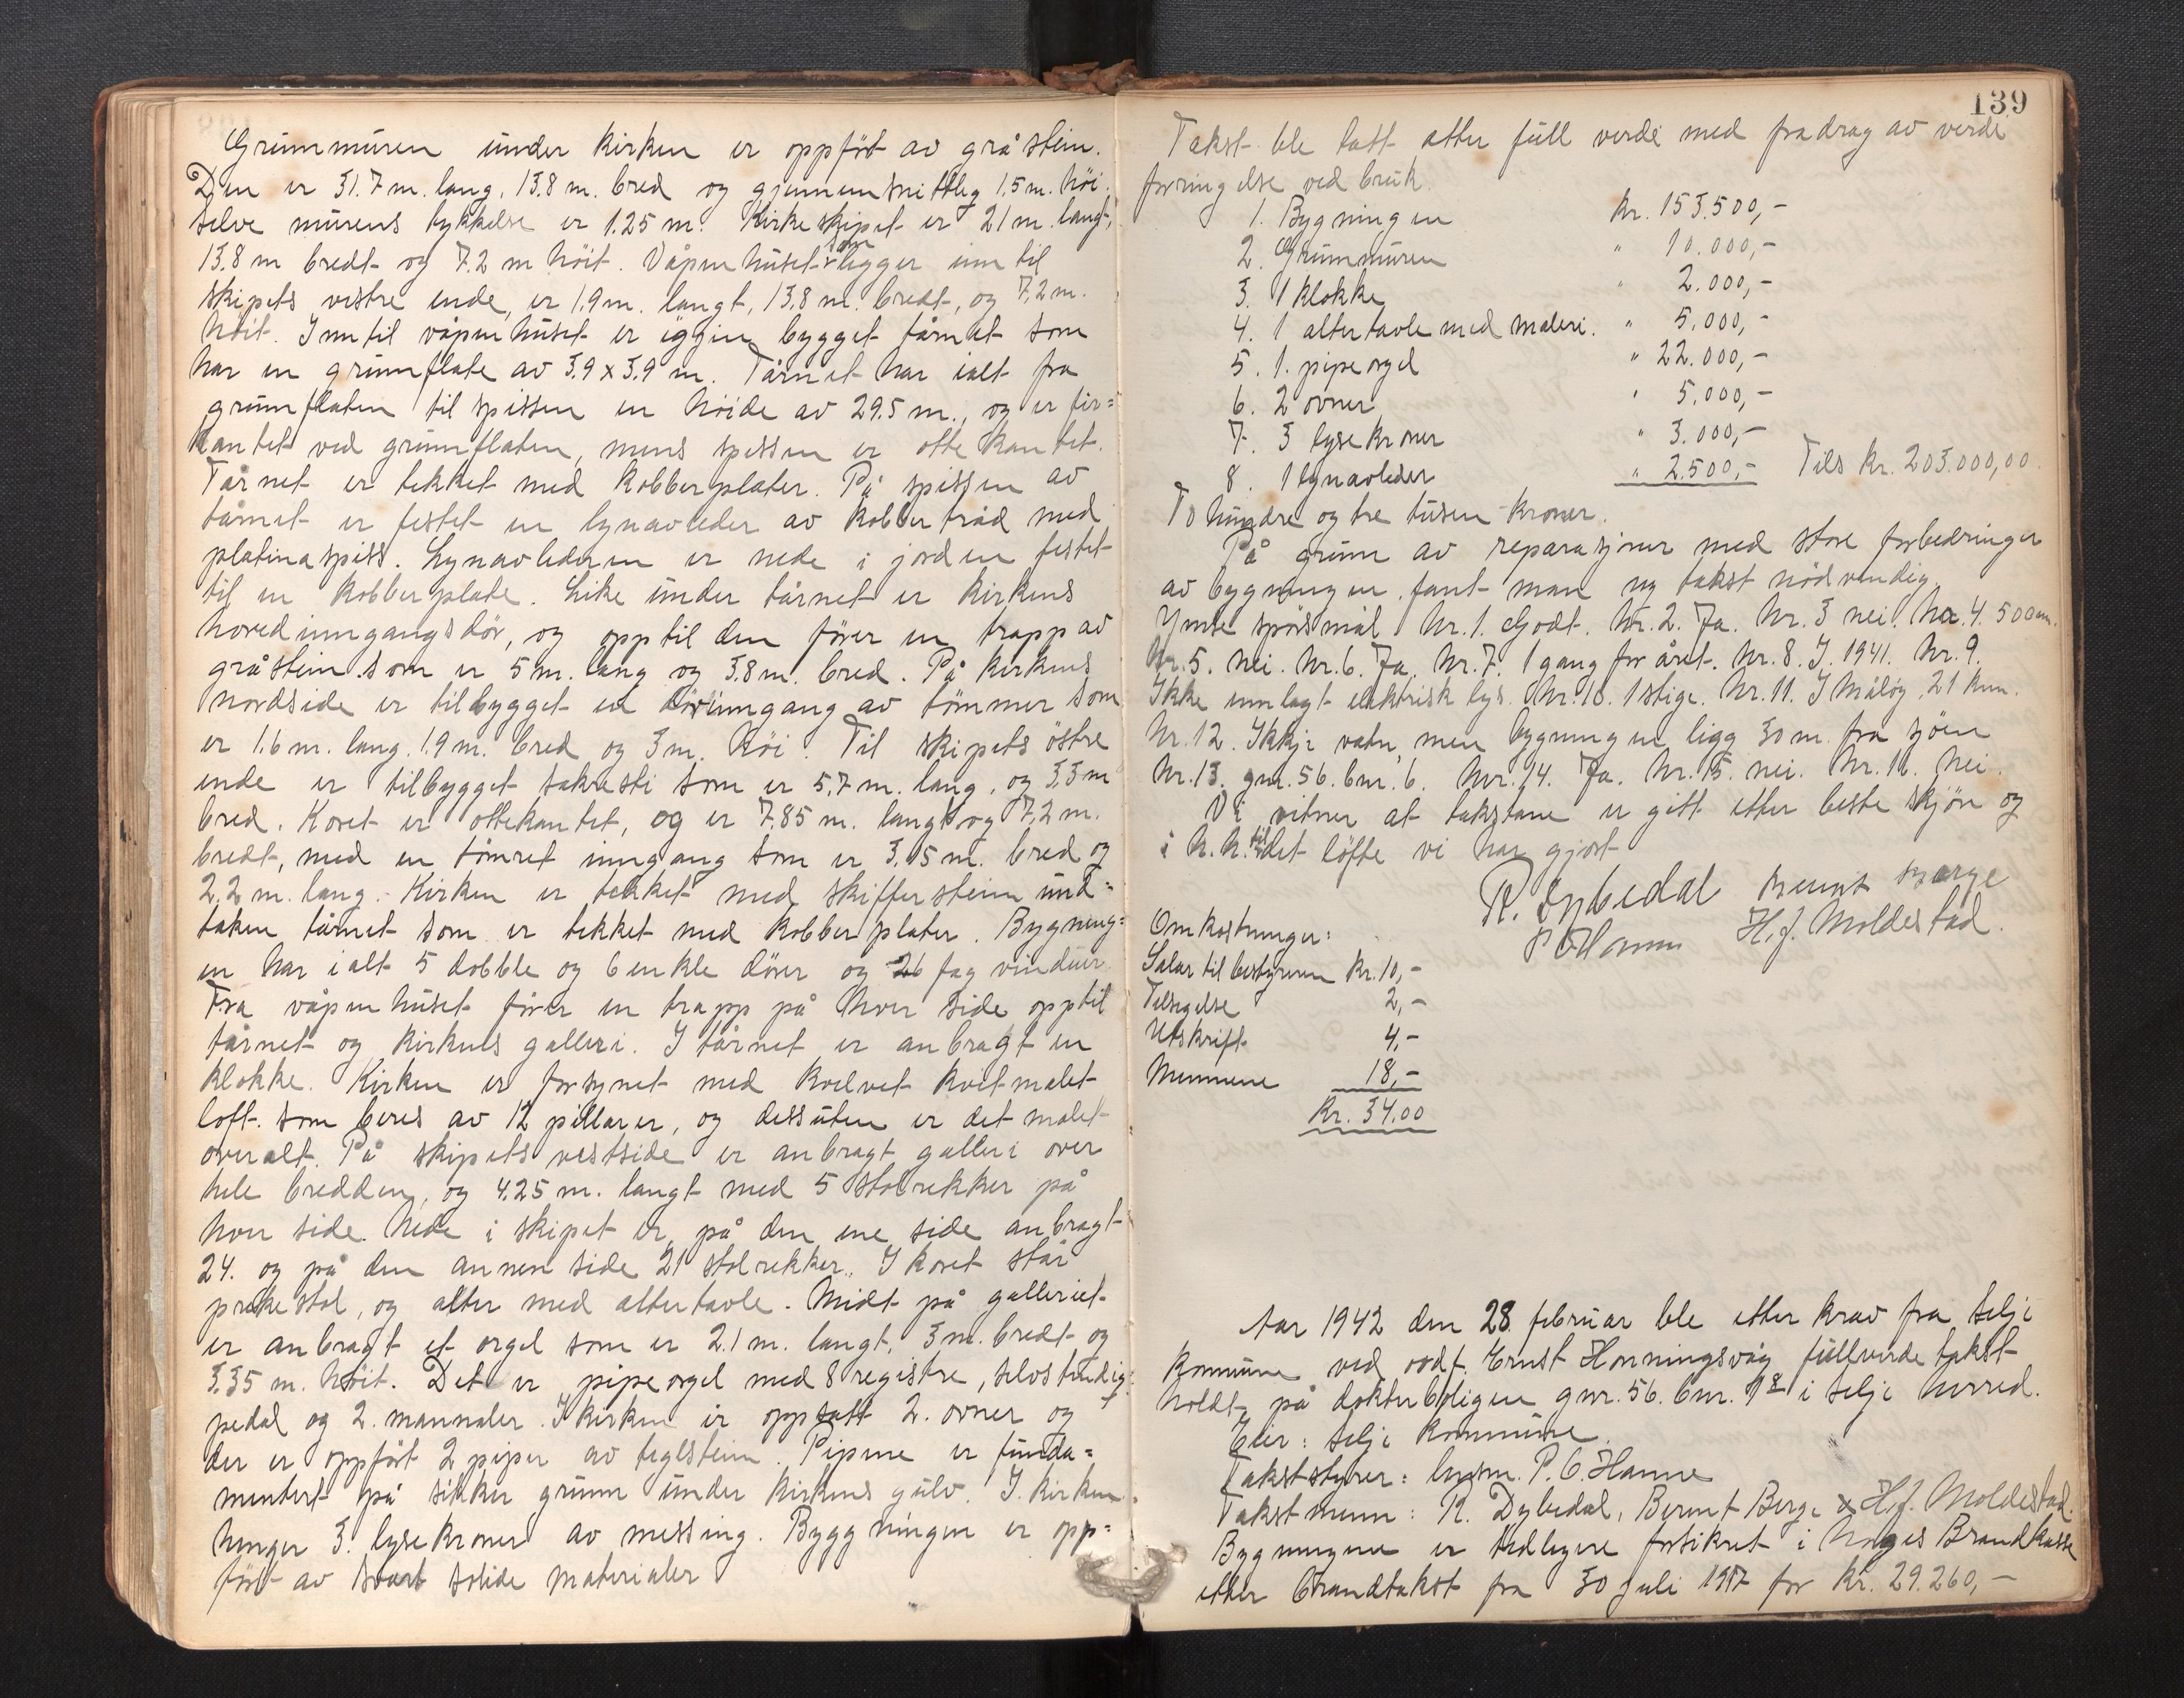 Grunmuren under kirken er oppført av gråstein.
Den er 31.7 m. lang, 13.8 m. bred og gjennemsnittlig 1.5 m. høi.
selve murens tykkelse er 1.25 m. Kirkeskipet er 21 m. langt,
13.8 m bredt og 7.2 m høit. Våpenhuset som ligger inn til
skipets vestre ende, er 1.9 m. langt, 13,8 m. bredt, og 7,2 m.
høit. Inntil våpenhuset er iggjen bygget tårnet som
har en grunnflate av 3.9 x 3.9 m. Tårnet har ialt fra
grunflaten til spissen en høide av 29.5 m., og er fir=
kantet ved grunflaten, mens spissen er ottekantet.
Tårnet er tekket med kobberplater. På spissen av
tårnet er festet en lynavleder av kobbertråd med
platinaspiss. Lynavlederen er nede i jorden festet
til en kobberplate. Like under tårnet er kirkens
hovedinngangsdør, og opptil den fører en trapp av
gråstein som er 5 m. lang og 3.8 m. bred. På kirkens
nordside er tilbygget en dørinngang av tømmer som
er 1.6 m. lang. 1.9 m. bred og 3 m. høi. Til skipets østre
ende er tilbygget sakresti som er 5,7 m. lang, og 3,3 m
bred. Koret er ottekantet, og er 7.85 m. langt og 7,2 m.
bredt, med en tømret inngang som er 3.15 m. bred og
2,2 m. lang. Kirken er tekket med skifferstein und=
taken tårnet som er tekket med kobberplater. Bygning=
en har ialt 5 dobble og 6 enkle dører og 26 fag vinduer.
Fra våpenhuset fører en trapp på hver side opptil
tårnet og kirkens galleri. I tårnet er anbragt en
klokke. Kirken er forsynet med kvelvet kvitmalet
loft som beres av 12 pillarer, og dessuten er det malet
overalt. På skipets vestside er anbragt galleri over
hele bredden, og 4.25 m. langt med 5 stolrekker på
hver side. Nede i skipet er på den ene side anbragt
24. og på den annen side 21 stolrekker. I koret står
prekestol, og alter med altertavle. Midt på galleriet
er anbragt et orgel som er 2.1 m. langt, 3 m. bredt og
3.35 m. høit. Det er pipeorgel med 8 registre, selvstendig
pedal og 2. mannaler. I kirken er oppsatt 2. ovner og
der er oppført 2 piper av teglstein. Pipene er funda=
mentert på sikker grunn under kirkens gulv. I kirken
henger 3. lysekroner av messing. Byggningen er opp=
ført av svært solide materialer
139
Takst ble tatt etter full verdi med fradrag av verdi
forringelse ved bruk.
1. Bygningen kr. 153.500,-
2. Grunmuren " 10.000,-
3. 1 klokke " 2.000,-
4. 1 altertavle med maleri. " 5.000,-
5. 1. pipeorgel " 22.000,-
6. 2 ovner " 5.000,-
7. 3 lysekroner " 3.000,-
8. 1 lynavleder " 2.500,- Tils kr. 203.000,00.
To hundre og tre tusen kroner.
På grunn av reparasjoner med store forbedringer
av bygningen fant man ny takst nødvendig.
Ymse spørsmål. Nr. 1. Godt. Nr. 2. Ja. Nr. 3 nei. Nr. 4. 500 m.
Nr. 5. Nei. Nr. 6. Ja. Nr. 7. 1 gang for året. Nr. 8. I 1941. Nr. 9.
Ikke innlagt elektrisk lys. Nr. 10. 1 stige. Nr. 11. I Måløy, 21 km.
Nr. 12. Ikkje vatn, men bygningen ligg 30 m. fra sjøen
Nr. 13. gnr. 56. bnr. 6. Nr. 14. Ja. Nr. 15. nei. Nr. 16. Nei.
Vi vitner at takstane er gitt etter beste skjøn og
i h.h. til det løfte vi har gjort
R. Dybedal Bernt Berge
P O Hanne H. J. Moldestad.
Omkostninger:
Salar til bestyreren kr. 10,-
Tilsigelse 2,-
Utskrift 4,-
Mennene 18,-
Kr. 34.00
Aar 1942 den 28 februar ble etter krav fra Selje
kommune ved ordf. Ernst Honningsvåg fullverdetakst
holdt på doktorboligen gnr. 56. bnr. 18 i Selje herred.
Eier: Selje kommune.
Takststyrer: lensm. P. O. Hanne
Takstmenn: R. Dybedal, Bernt Berge & H. J. Moldestad.
Bygningene er tidlegere forsikret i Noges Brandkasse
etter brandtakst fra 30 juli 1917 for kr. 29.260,-